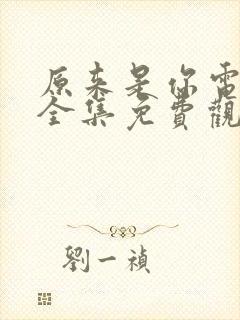 原来是你電
全集免費觀
劉一禎